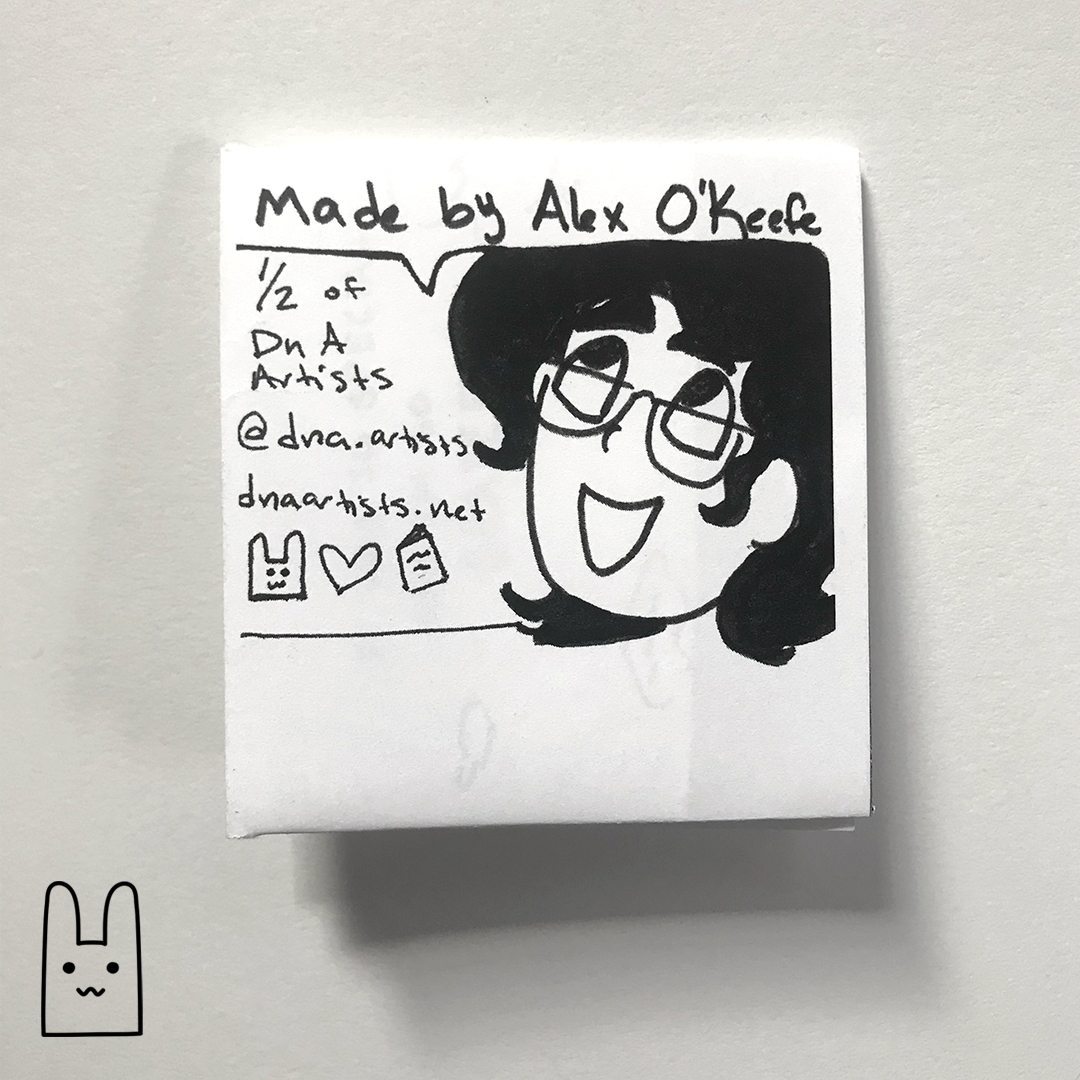 Made by Alex O'Keefe
1/2 of
DnA
Artists
@dna.artists
dnaartists.net